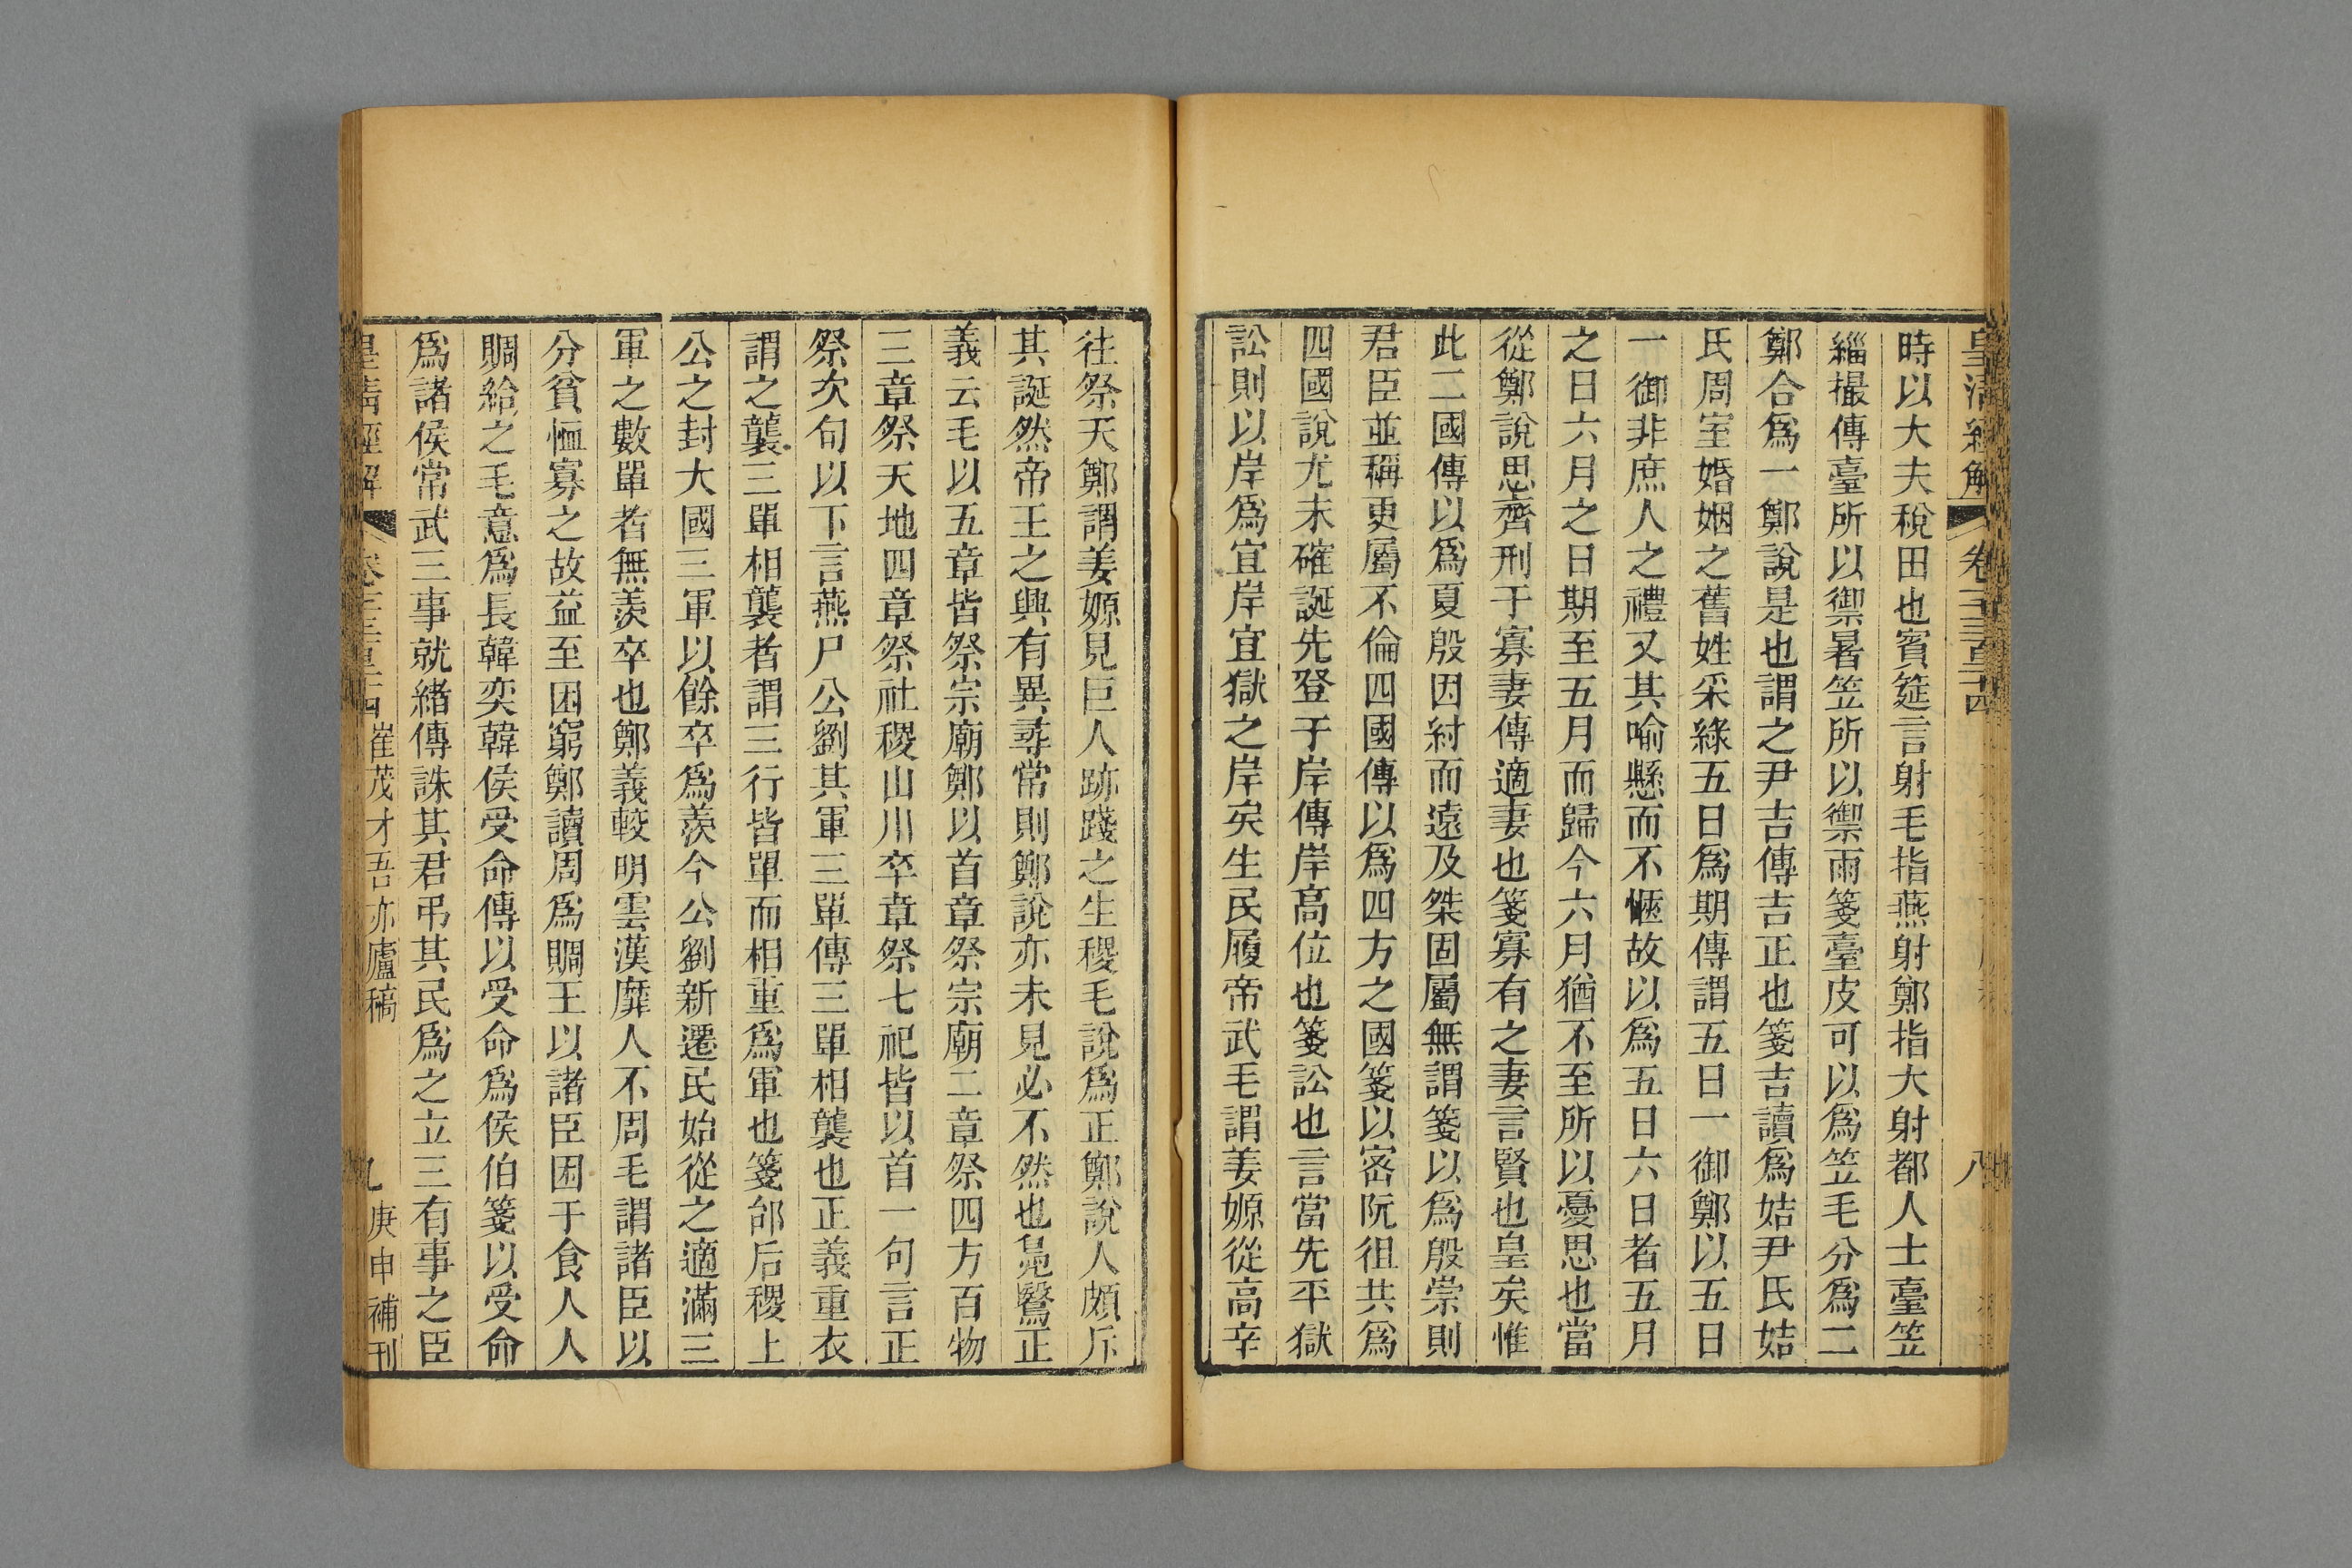 皇清經解 卷一千三百二十四 八
時以大夫稅田也賓筵言射毛指燕射鄭指大射都人士臺笠
緇撮傳臺所以禦暑笠所以禦雨箋臺皮可以爲笠毛分爲二
鄭合爲一鄭說是也謂之尹吉傳吉正也箋吉讀爲姞尹氏姞
氏周室婚姻之舊姓采綠五日爲期傳謂五日一御鄭以五日
一御非庶人之禮又其喻懸而不愜故以爲五日六日者五月
之日六月之日期至五月而歸今六月猶不至所以憂思也當
從鄭說思齊刑于寡妻傳適妻也箋寡有之妻言賢也皇矣惟
此二國傳以爲夏殷因紂而遠及桀固屬無謂箋以爲殷崇則
君臣並稱更屬不倫四國傳以爲四方之國箋以密阮徂共爲
四國說尤未確誕先登于岸傳岸高位也箋訟也言當先平獄
訟則以岸爲宜岸宜獄之岸矣生民履帝武毛謂姜嫄從高辛
往祭天鄭謂姜嫄見巨人跡踐之生稷毛說爲正鄭說人頗斥
其誕然帝王之興有異尋常則鄭說亦未見必不然也鳧鷖正
義云毛以五章皆祭宗廟鄭以首章祭宗廟二章祭四方百物
三章祭天地四章祭社稷山川卒章祭七祀皆以首一句言正
祭次句以下言燕尸公劉其軍三單傳三單相襲也正義重衣
謂之襲三單相襲者謂三行皆單而相重爲軍也箋邰后稷上
公之封大國三軍以餘卒爲羨今公劉新遷民始從之適滿三
軍之數單者無羨卒也鄭義較明雲漢靡人不周毛謂諸臣以
分貧恤寡之故益至困窮鄭讀周爲賙王以諸臣困于食人人
賙給之毛意爲長韓奕韓侯受命傳以受命爲侯伯箋以受命
爲諸侯常武三事就緒傳誅其君弔其民爲之立三有事之臣
皇清經解 卷一千三百二十四 崔茂才吾亦廬稿 九 庚申補刊